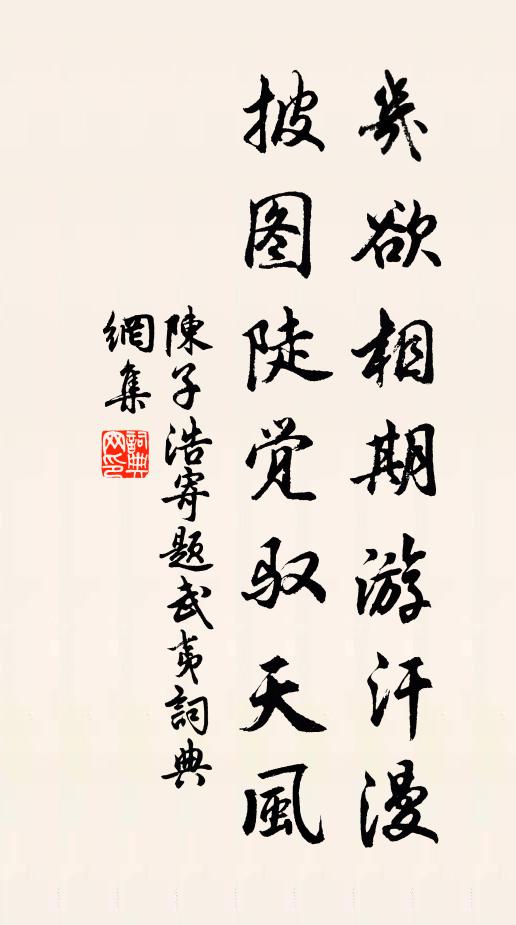 幾欲相期游汗漫
披图陡觉驭天風
陳子浩寄題武夷詞典
網集
詞典
网印